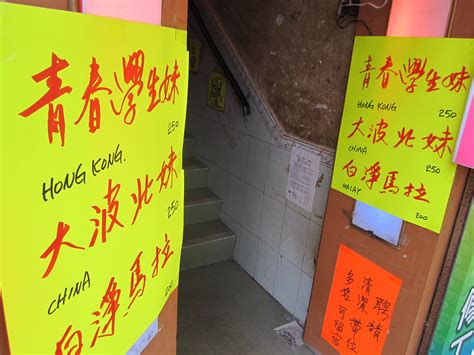 青春學生妹
250
HONG KONG.
大波北妹
250
CHINA
白淨馬拉
青春學生妹
HONG KONG 250
大波北妹
CHINA 250
白淨馬拉
MALAY 200
聘請
清潔